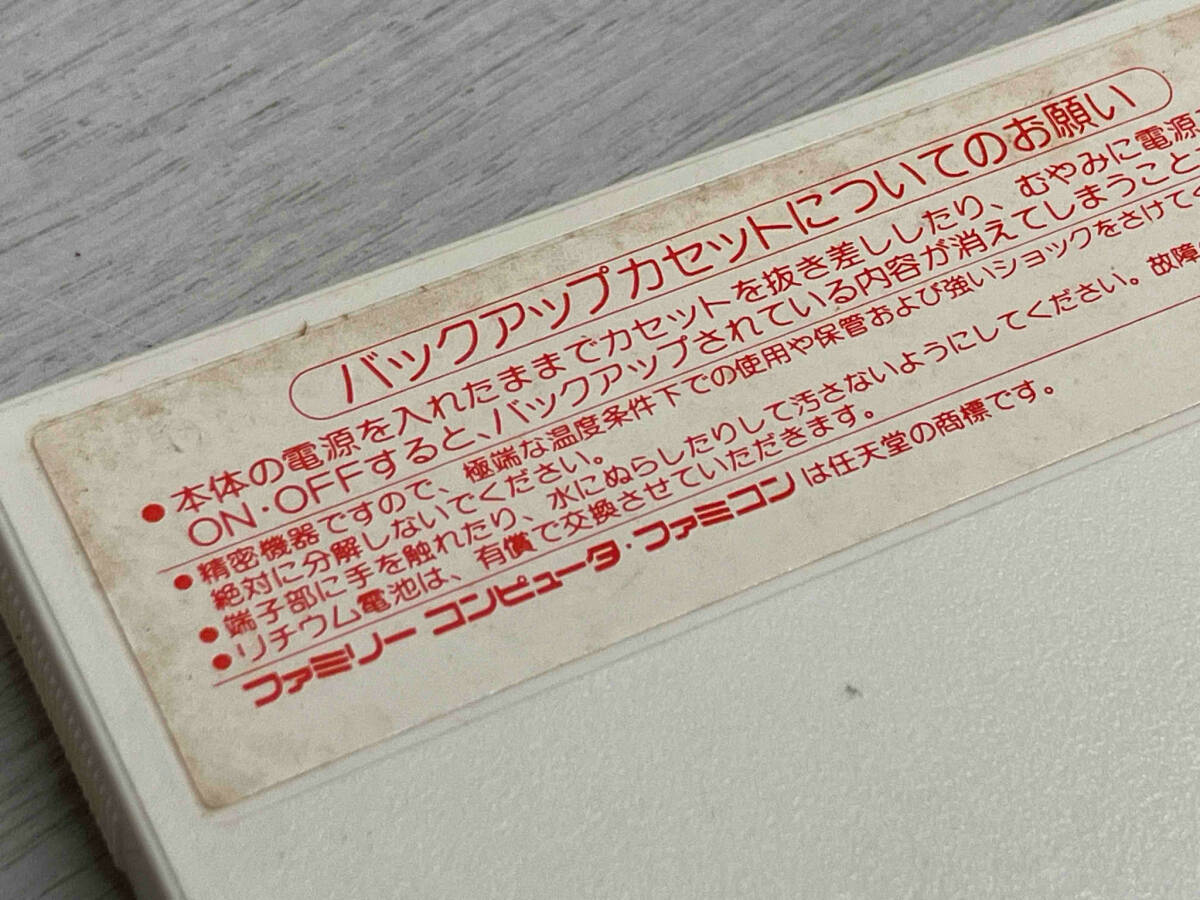 バックアップカセットについてのお願い
●本体の電源を入れたままでカセットを抜き差ししたり、むやみに電源
ON・OFFすると、バックアップされている内容が消えてしまうこと
●精密機器ですので、極端な温度条件下での使用や保管および強いショックをさけてく
絶対に分解しないでください。
●端子部に手を触れたり、水にぬらしたりして汚さないようにしてください。故障
●リチウム電池は、有償で交換させていただきます。
ファミリーコンピュータ・ファミコンは任天堂の商標です。